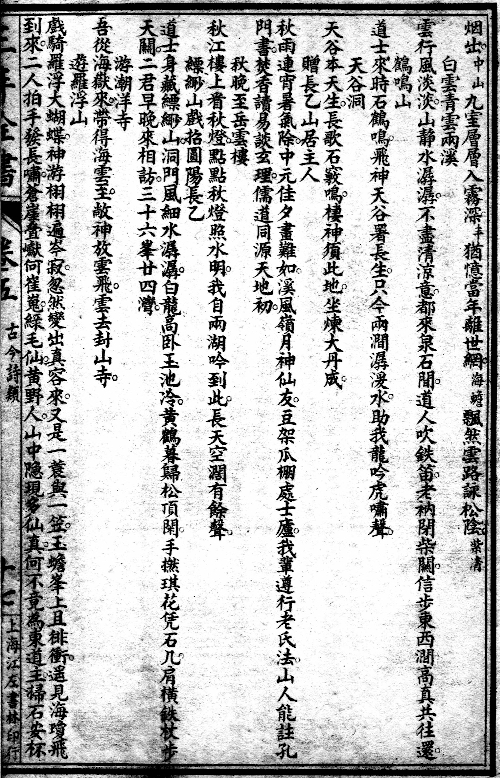 烟出中山九室層層入霧深丰猶憶當年離世網海蟾飄然雲路詠松陰紫清
白雲青雲兩溪
雲行風淡淡山静水潺潺不盡清涼意都來泉石間道人吹鉄笛老衲閉柴關信步東西澗高真共往還
鶴鳴山
道士來時石鶴鳴飛神天谷署長生只今兩澗潺湲水助我龍吟虎嘯聲
天谷洞
天谷本天生長歌石竅鳴棲神須此地坐煉大丹成
贈長乙山居主人
秋雨連宵暑氣除中元佳夕畫難如溪風嶺月神仙友豆架瓜棚處士廬我輩遵行老氏法山人能註孔
門書焚香請易談玄理儒道同源天地初
秋晚至岳雲樓
秋江樓上看秋燈點點秋燈照水明我自兩湖吟到此長天空濶有餘聲
縹緲山戲招圓陽長乙
道士身藏縹緲山洞門風細水潺潺白龍高卧玉池冷黄鶴暮歸松頂閑手撫琪花凭石几肩橫鉄杖步
天關二君早晚來相訪三十六峯廿四灣
游潮洋寺
吾從海嶽來帶得海雲至敵神放雲飛雲去封山寺
遊羅浮山
戲騎羅浮大蝴蝶神游栩栩遍岑寂忽然變出真容來又是一蓑與一笠玉蟾峯上且徘徊遥見海瓊飛
到來二人拍手發長嘯倉崖叠巘何崔嵬綠毛仙黄野人山中隱現多仙真何不竟為東道主掃石安杯
三丰全書
卷五
古今詩類
十七
上海江左書林印行